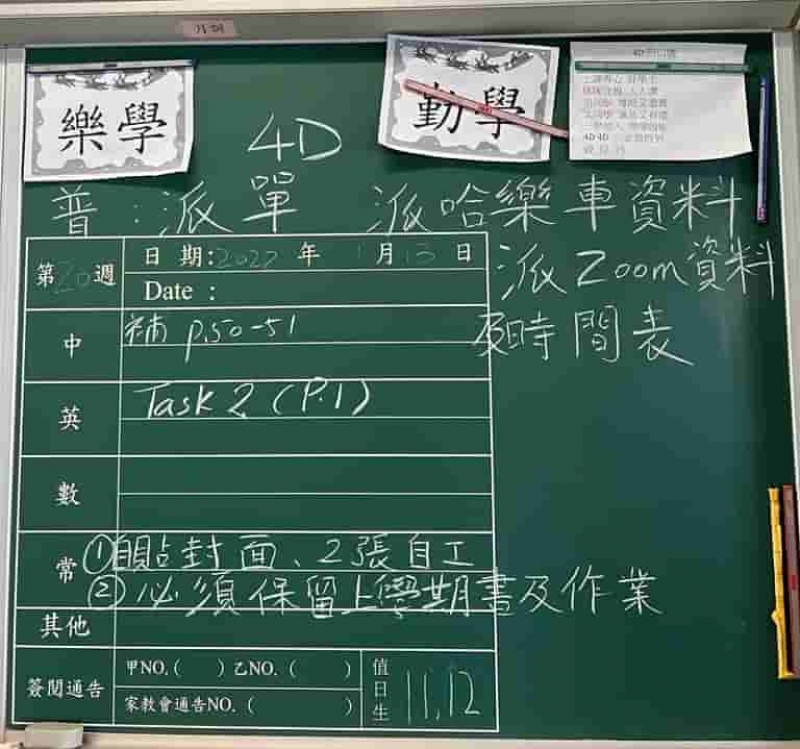 樂學
勤學
4D
普：派單 派哈樂車資料
派Zoom資料
及時間表
第20週
日期:2022年1月13日
Date :
中
補 p.50-51
英
Task 2 (P.1)
數
常
①貼封面、2張自工
②必須保留上學期書及作業
其他
簽閱通告
甲NO.( ) 乙NO.( )
家教會通告NO.( )
值日生
11,12